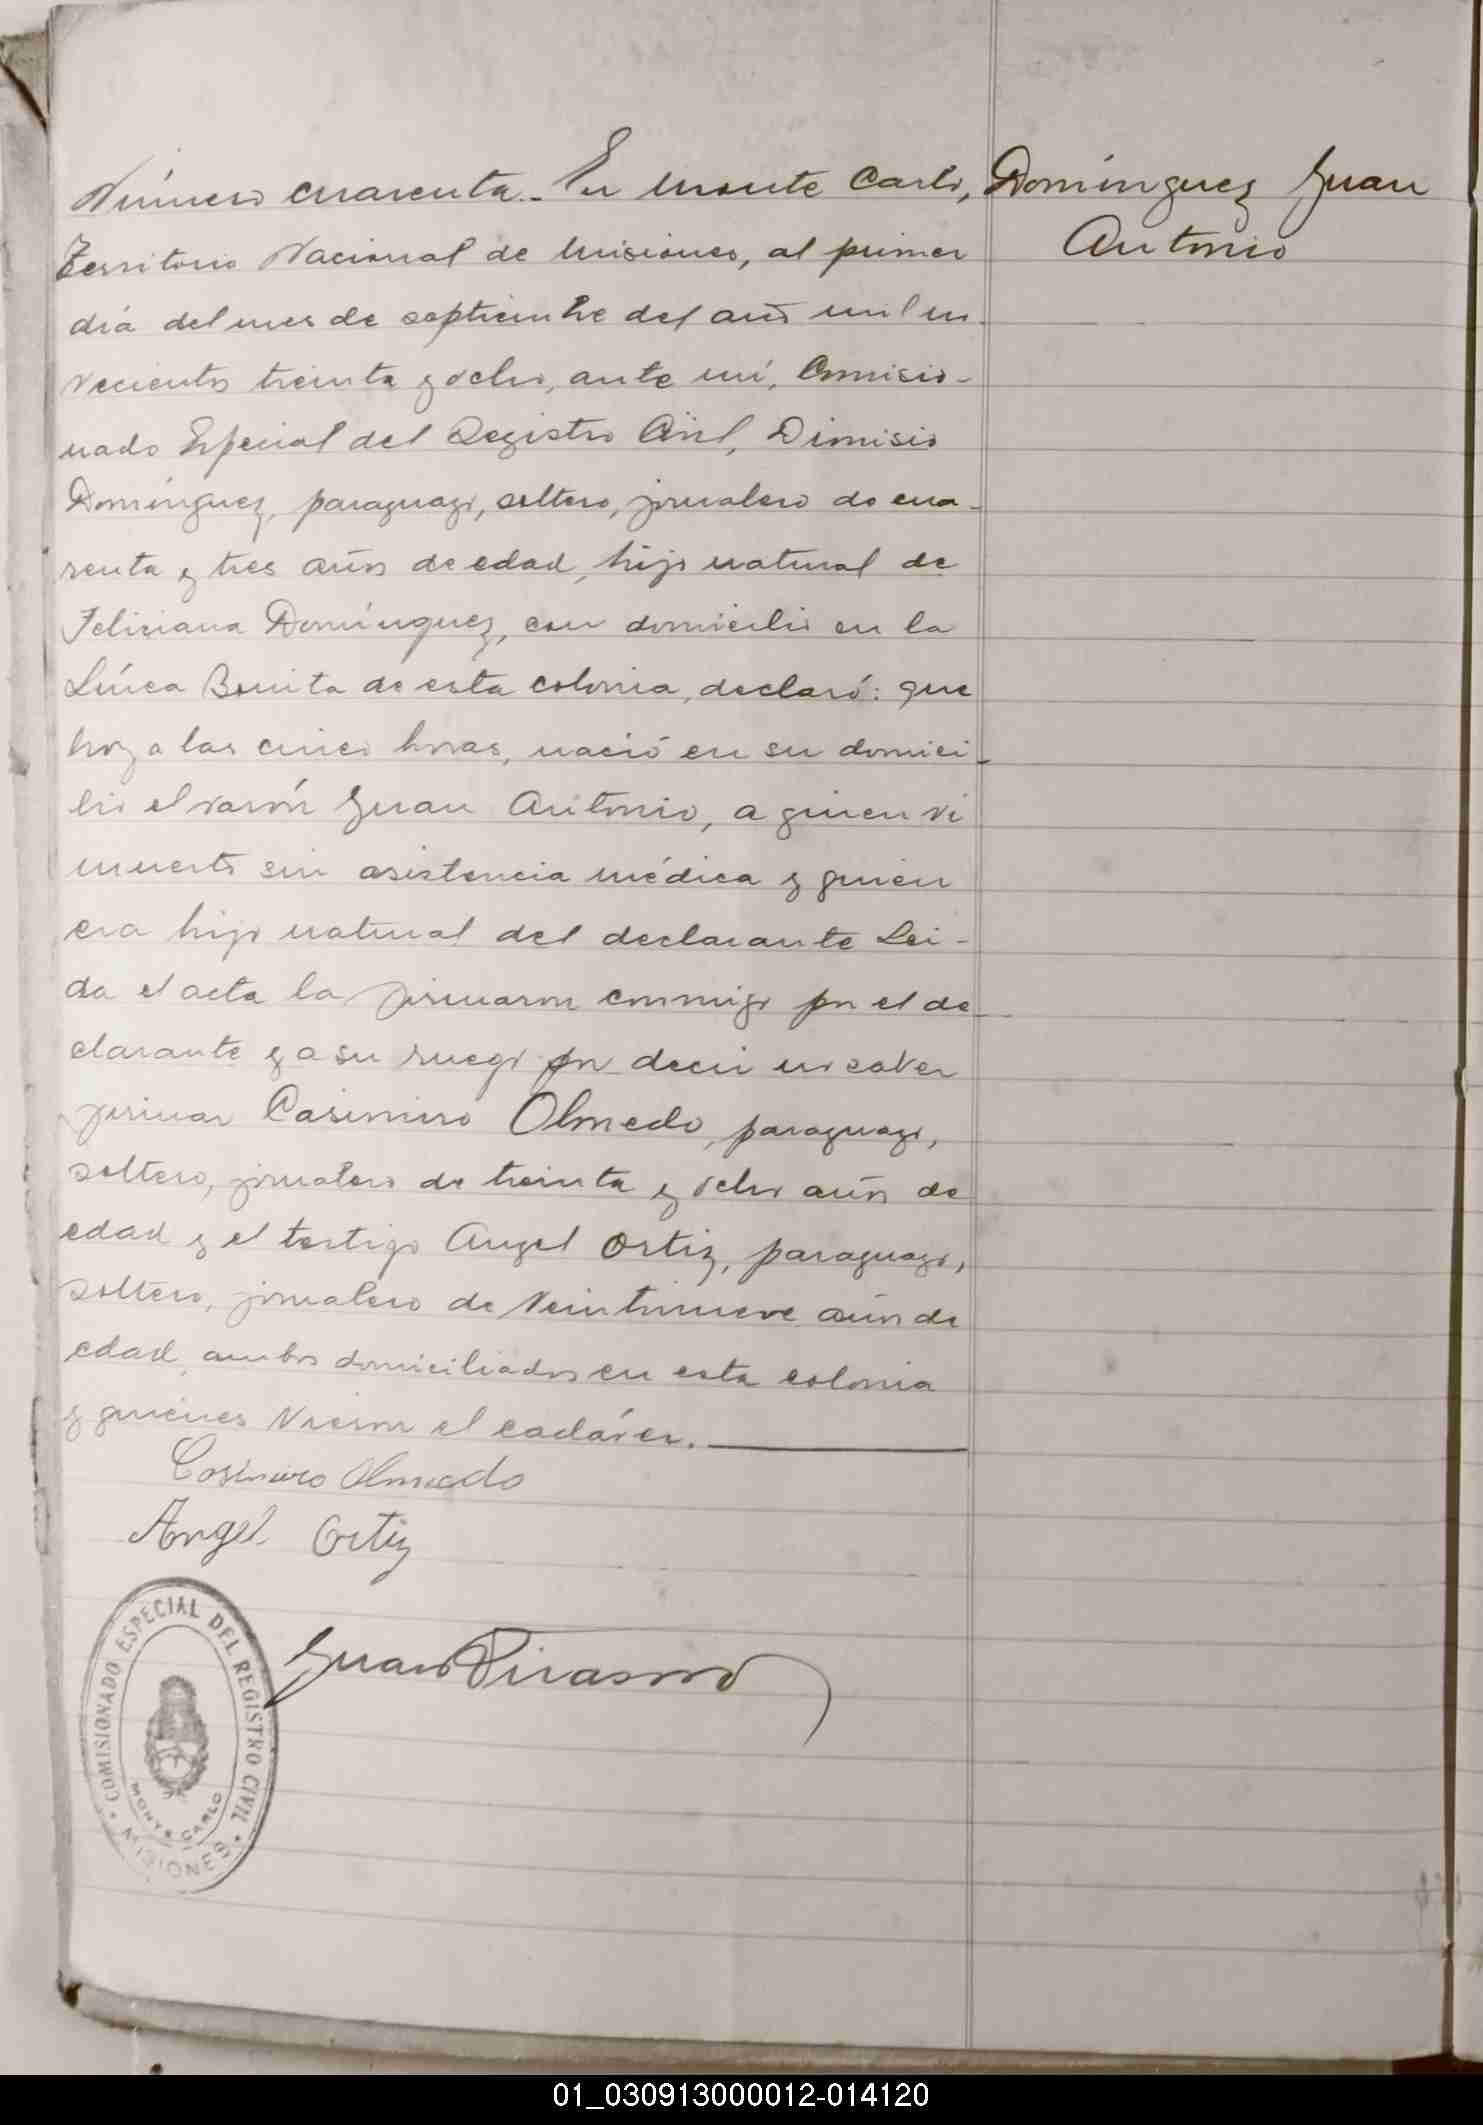 Número cuarenta.- En Monte Carlo,
Domínguez Juan
Antonio
Territorio Nacional de Misiones, al primer
día del mes de septiembre del año mil no-
vecientos treinta y ocho, ante mí, Comisio-
nado Especial del Registro Civil, Dionisio
Domínguez, paraguayo, soltero, jornalero de cua-
renta y tres años de edad, hijo natural de
Feliciana Domínguez, con domicilio en la
Línea Bonita de esta colonia, declaró: que
hoy a las cinco horas, nació en su domici-
lio el varón Juan Antonio, a quien vi
muerto sin asistencia médica y quien
era hijo natural del declarante Lei-
da el acta la firmaron conmigo por el de-
clarante y a su ruego por decir no saber
firmar Casimiro Olmedo, paraguayo,
soltero, jornalero de treinta y ocho años de
edad y el testigo Angel Ortiz, paraguayo,
soltero, jornalero de veintinueve años de
edad, ambos domiciliados en esta colonia
y quienes vieron el cadáver.
Casimiro Olmedo
Angel Ortiz
Juan
COMISIONADO ESPECIAL DEL REGISTRO CIVIL
MONTE CARLO
MISIONES
01_030913000012-014120